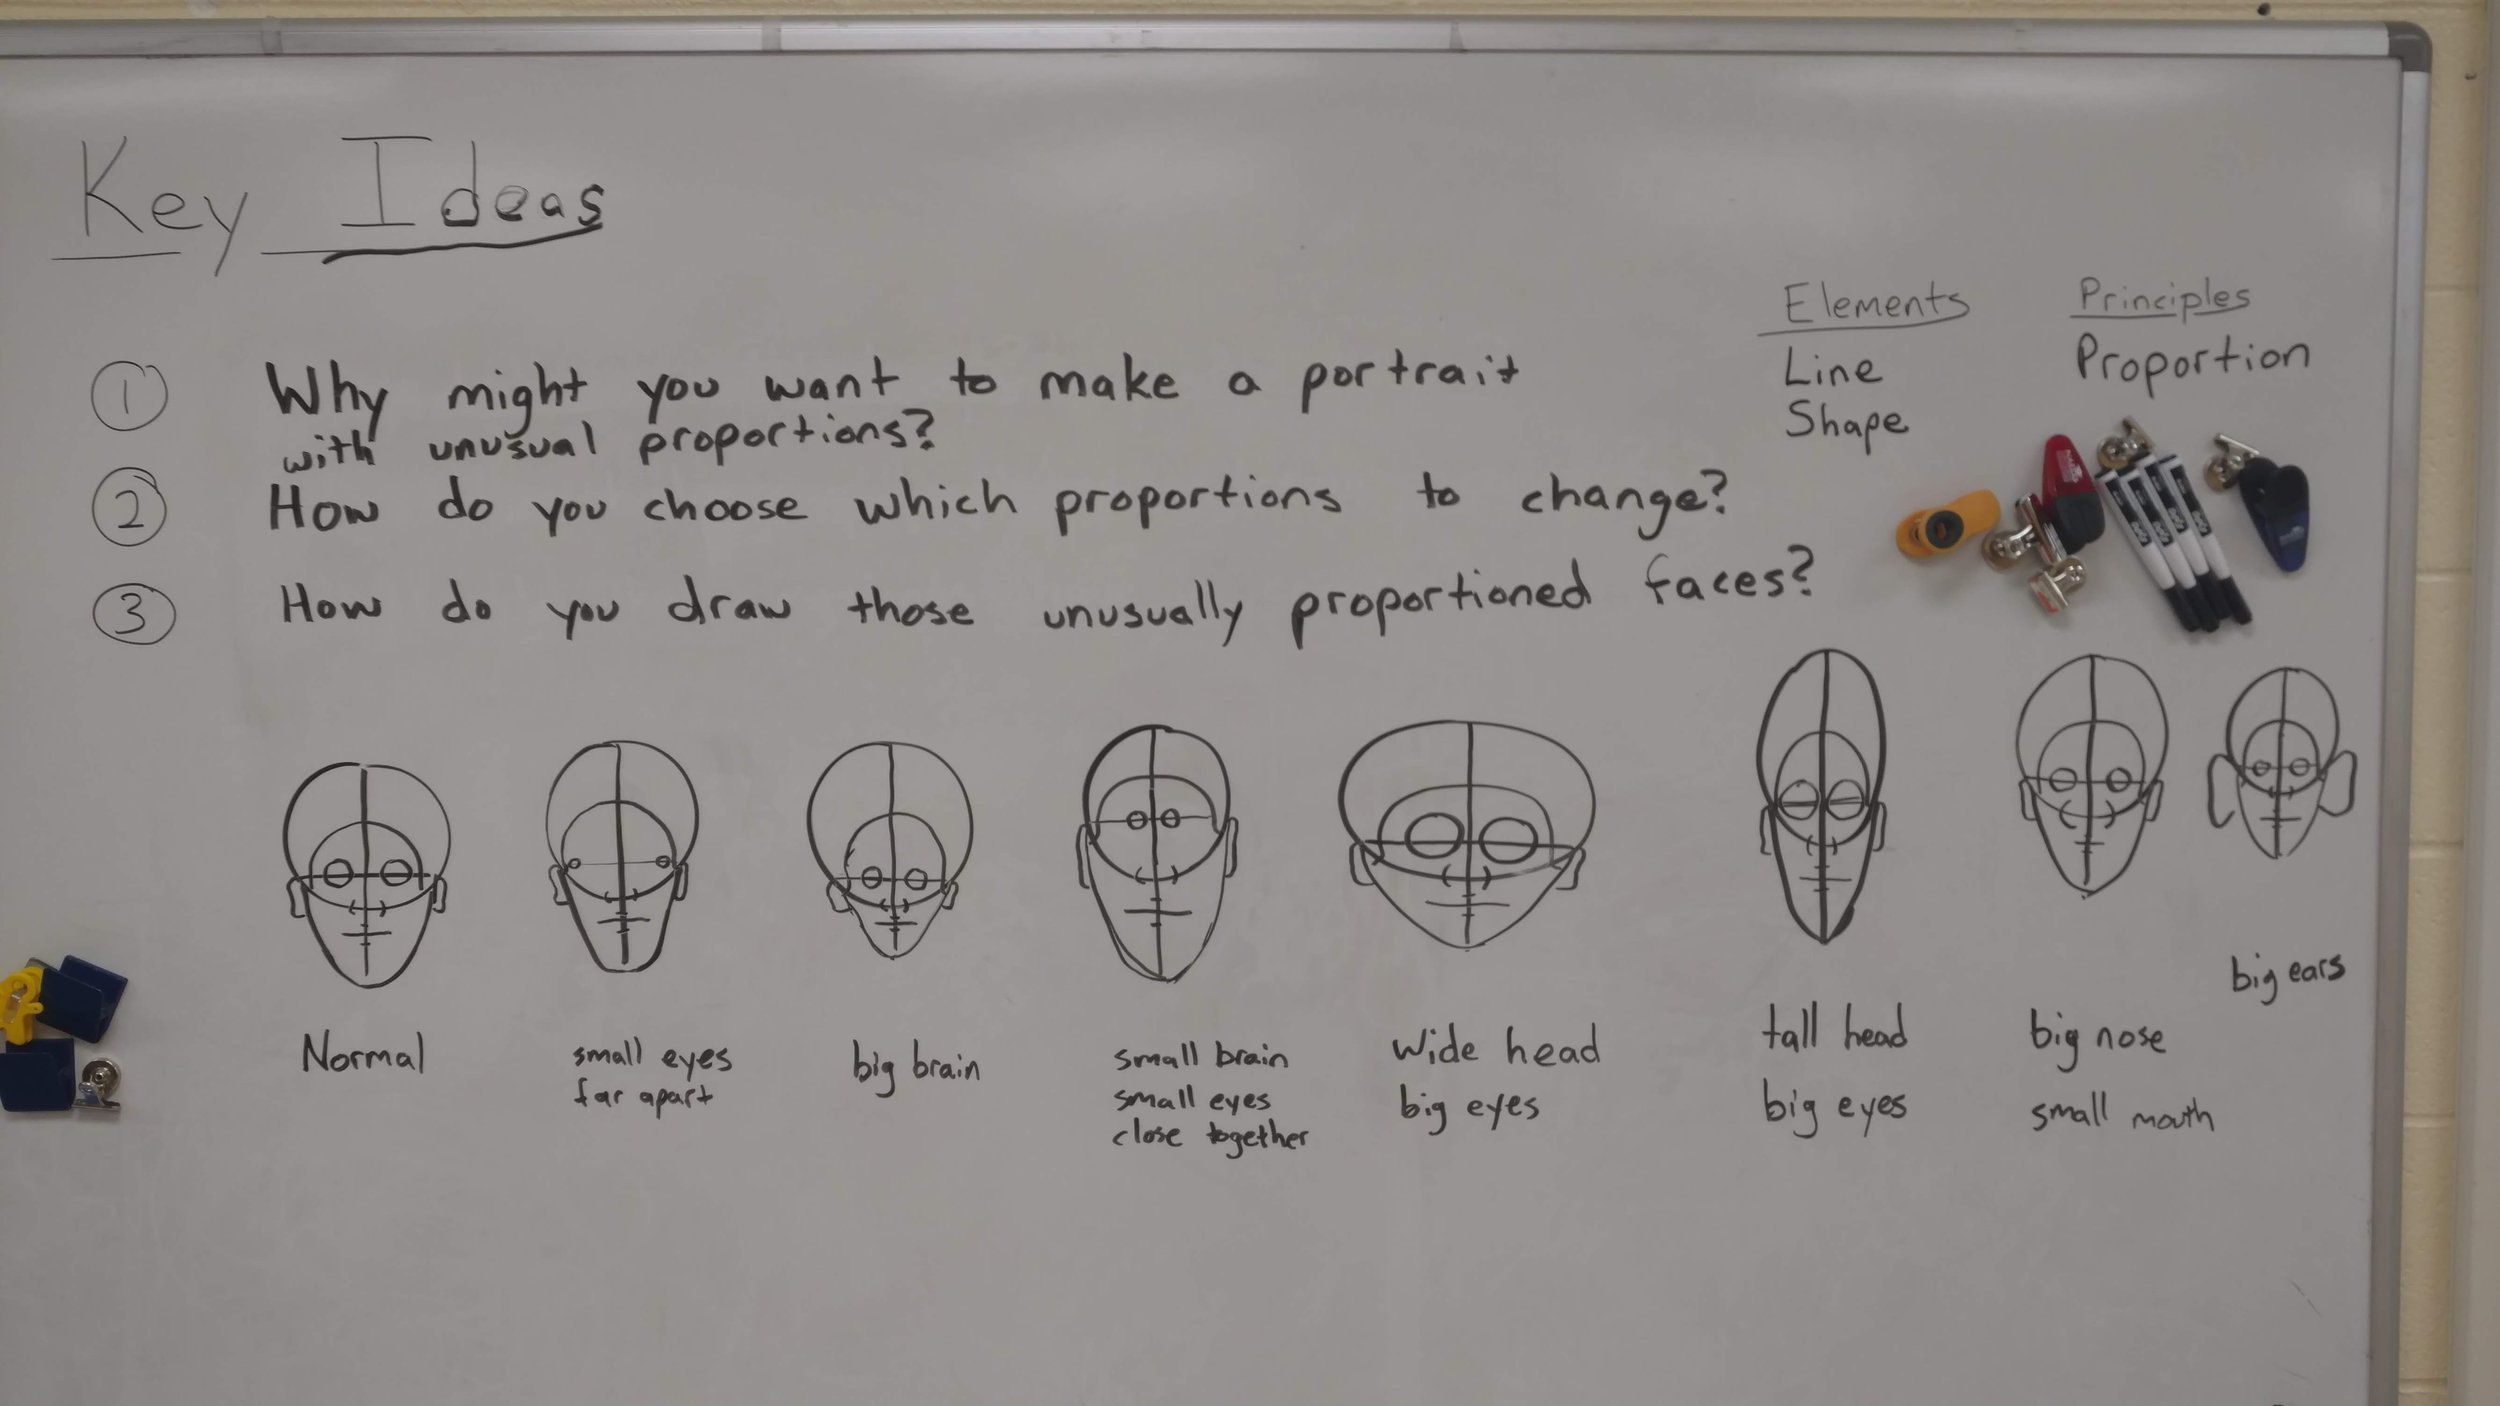 Key Ideas
Elements
Line
Shape
Principles
Proportion
1 Why might you want to make a portrait
with unusual proportions?
2 How do you choose which proportions to change?
3 How do you draw those unusually proportioned faces?
Normal
small eyes
far apart
big brain
small brain
small eyes
close together
Wide head
big eyes
tall head
big eyes
big nose
small mouth
big ears